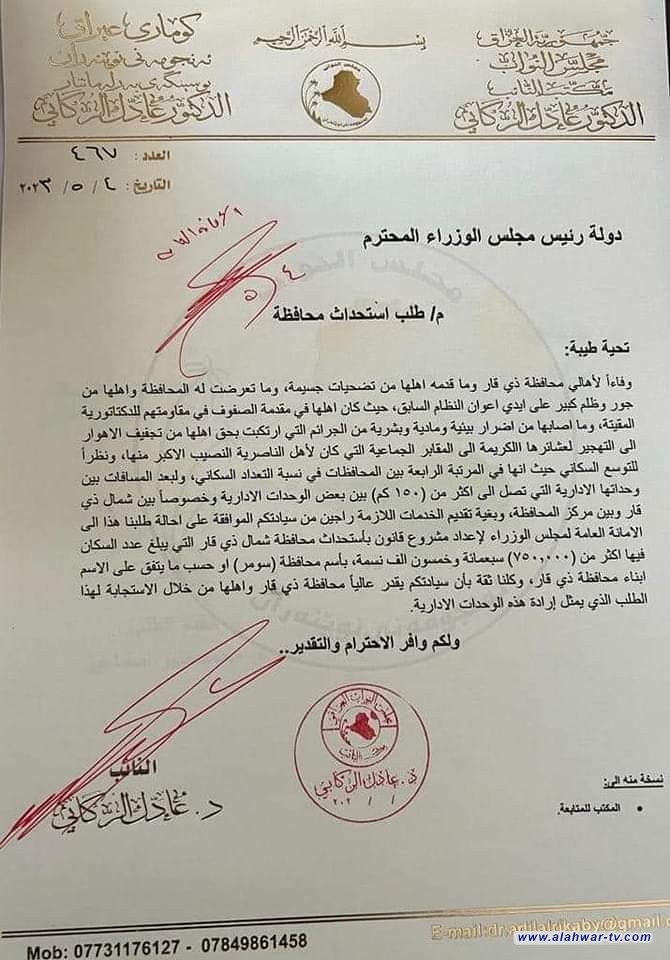 بسم الله الرحمن الرحيم
جمهورية العراق
مجلس النواب
مكتب النائب
الدكتور عادل الركابي
كوماری عیراق
ئه نجومه نی نوینه ران
الدكتور عادل الركابي
العدد: ٤٦٧
التاريخ: ٤ / ٥ / ٢٠٢٣
دولة رئيس مجلس الوزراء المحترم
م/ طلب استحداث محافظة
تحية طيبة:
وفاءاً لأهالي محافظة ذي قار وما قدمه اهلها من تضحيات جسيمة، وما تعرضت له المحافظة واهلها من
جور وظلم كبير على ايدي اعوان النظام السابق، حيث كان اهلها في مقدمة الصفوف في مقاومتهم للدكتاتورية
المقيتة، وما اصابها من اضرار بيئية ومادية وبشرية من الجرائم التي ارتكبت بحق اهلها من تجفيف الاهوار
الى التهجير لعشائرها االكريمة الى المقابر الجماعية التي كان لأهل الناصرية النصيب الاكبر منها، ونظراً
للتوسع السكاني حيث انها في المرتبة الرابعة بين المحافظات في نسبة التعداد السكاني، ولبعد المسافات بين
وحداتها الادارية التي تصل الى اكثر من (١٥٠ كم) بين بعض الوحدات الادارية وخصوصاً بين شمال ذي
قار وبين مركز المحافظة، وبغية تقديم الخدمات اللازمة راجين من سيادتكم الموافقة على احالة طلبنا هذا الى
الامانة العامة لمجلس الوزراء لإعداد مشروع قانون بأستحداث محافظة شمال ذي قار التي يبلغ عدد السكان
فيها اكثر من (٧٥٠,٠٠٠) سبعمائة وخمسون الف نسمة، بأسم محافظة (سومر) او حسب ما يتفق على الاسم
ابناء محافظة ذي قار، وكلنا ثقة بأن سيادتكم يقدر عالياً محافظة ذي قار واهلها من خلال الاستجابة لهذا
الطلب الذي يمثل إرادة هذه الوحدات الادارية.
ولكم وافر الاحترام والتقدير..
النائب
د. عادل الركابي
مجلس النواب العراقي
مكتب النائب
د. عادل الركابي
نسخة منه الى:
• المكتب للمتابعة.
Mob: 07731176127 - 07849861458
www.alahwar-tv.com